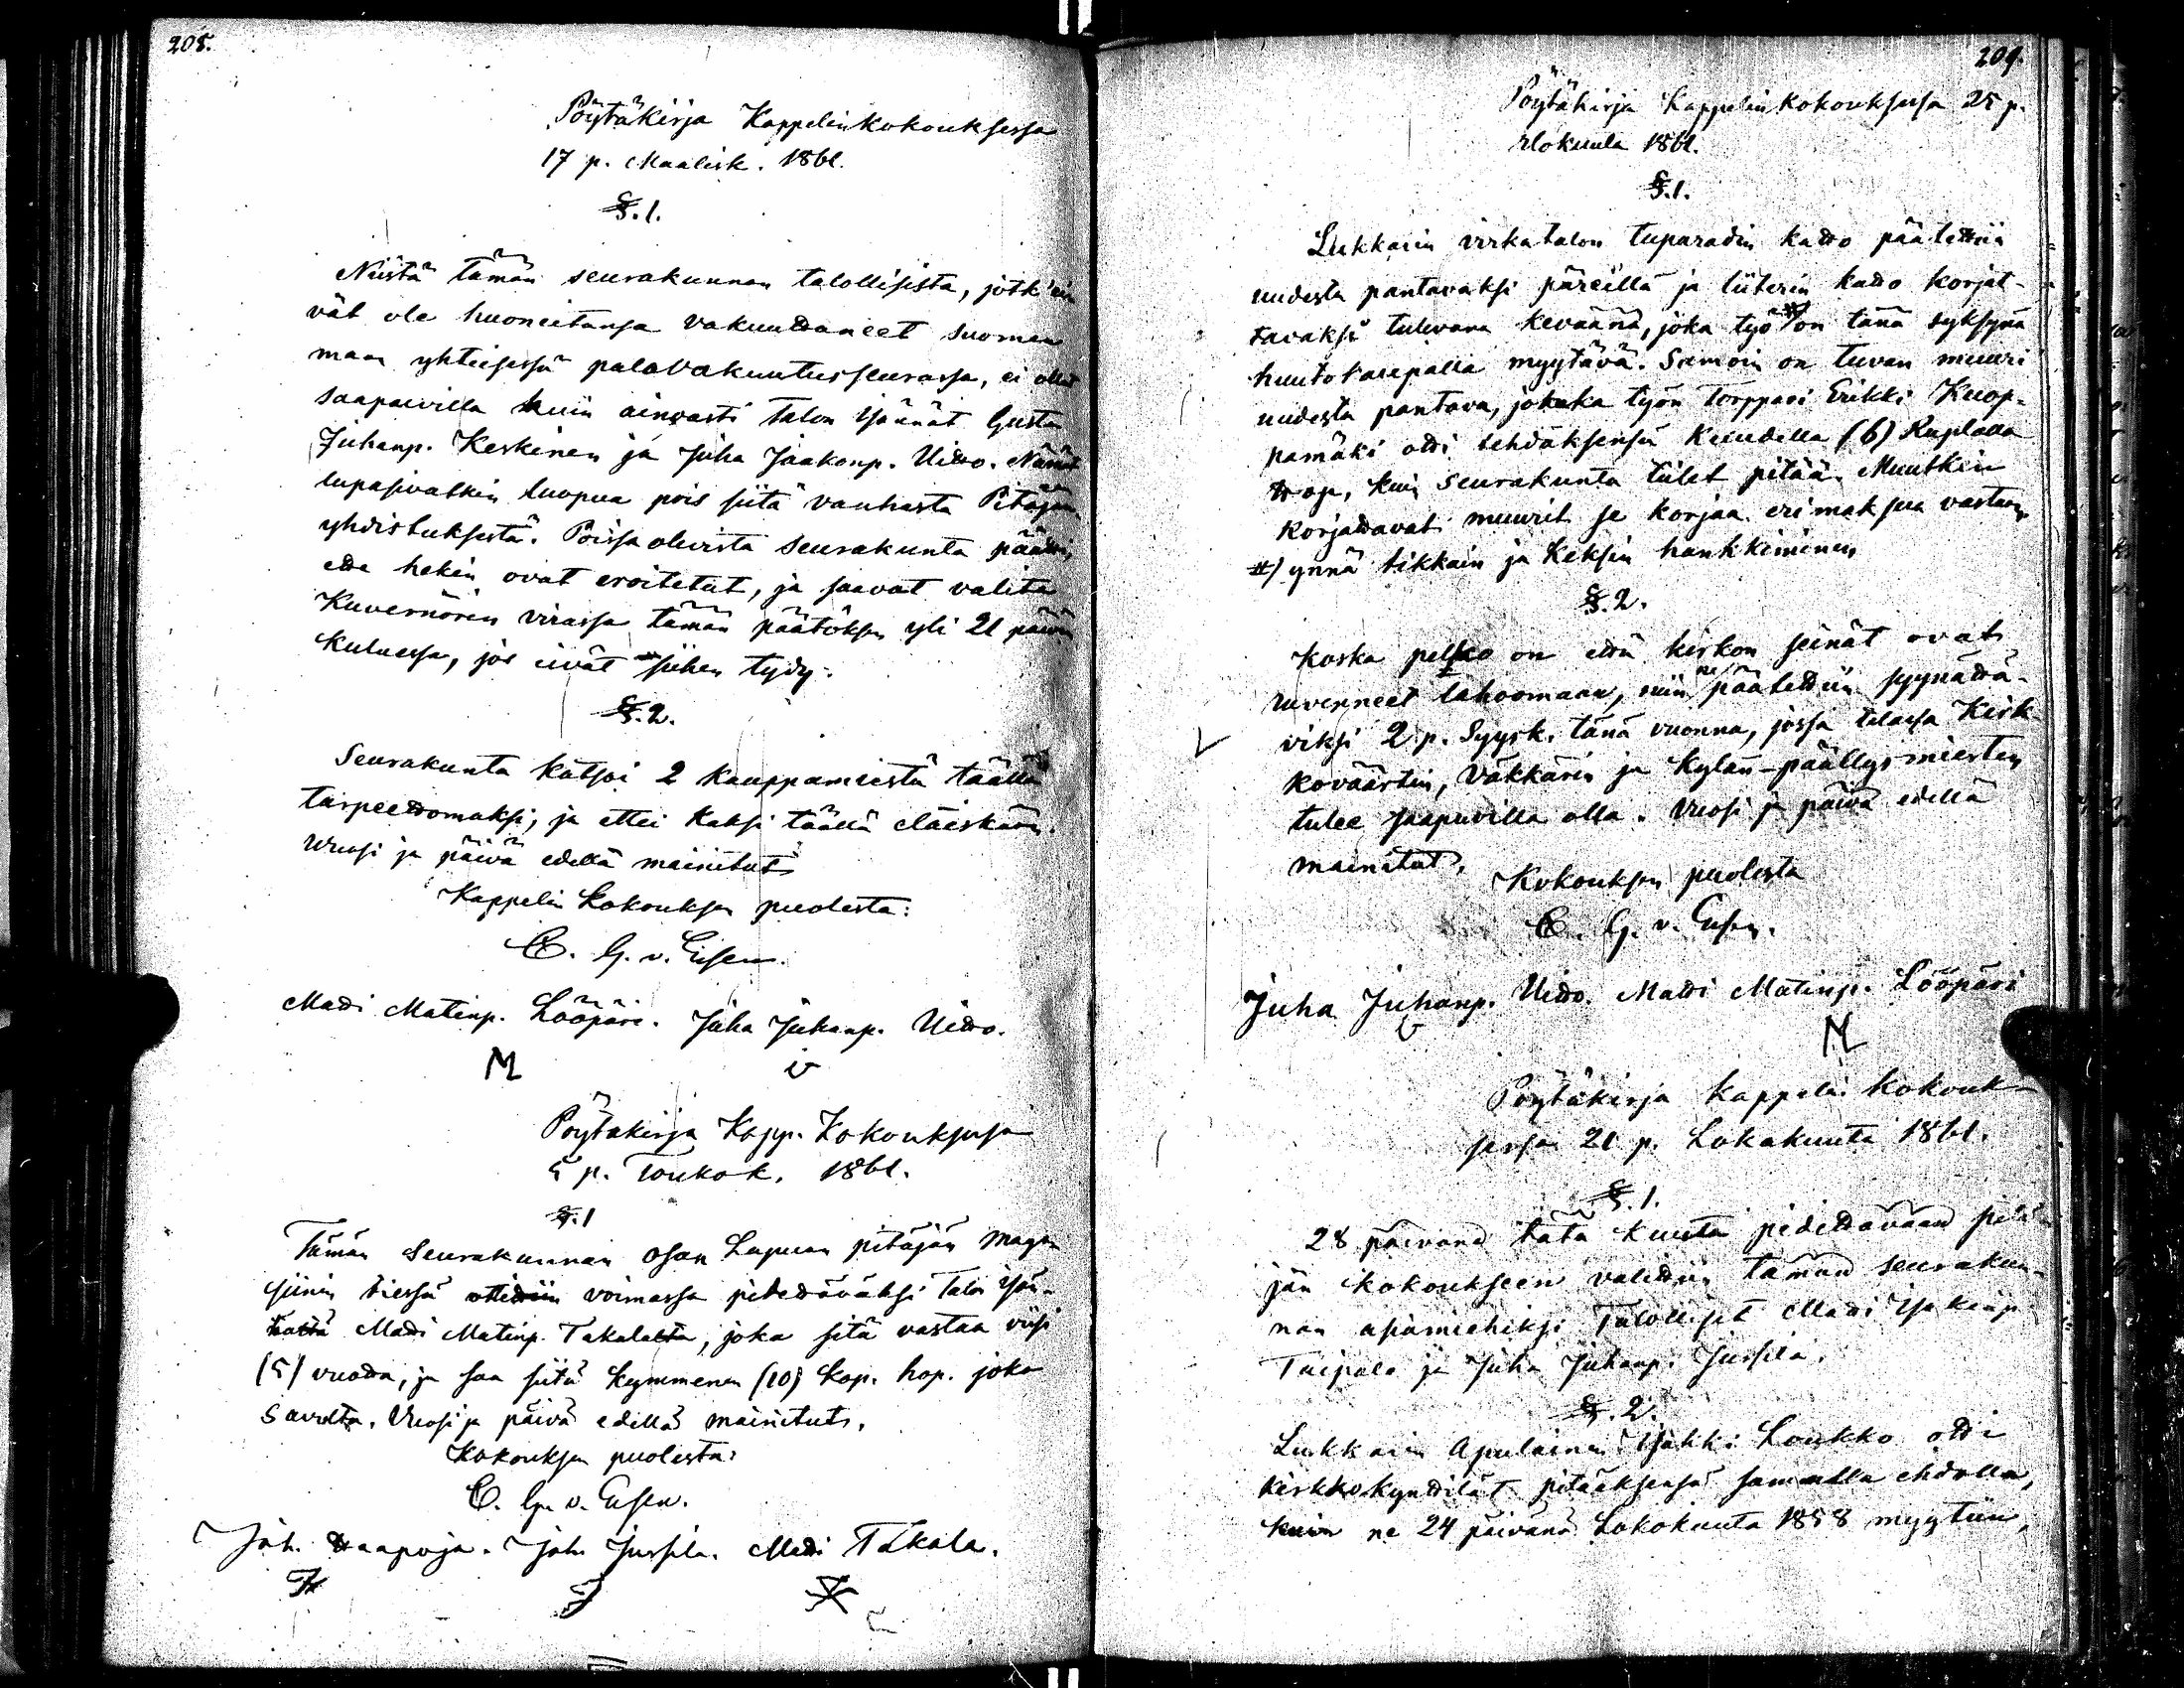 208.
Pöytäkirja Kappelinkokouksessa
17 p. Maalisk. 1861.
§. 1.
Niistä tämän seurakunnan talollisista, jotk' ei
vät ole huoneitansa vakuuttaneet Suomen
maan yhteisessä palovakuutusseurassa, ei ollut
saapuvilla kuin ainoasti talon Isännät Gusta
Juhanp. Keskinen ja Juha Jaakonp. Uitto. Nämät
lupasivatkin luopua pois siitä vanhasta Pitäjän
yhdistuksestä. Poissa olevista seurakunta päätti,
ette hekin ovat eroitetut, ja saavat valita
Kuvernörin virassa tämän päätöksen yli 21 päivän
kuluessa, jos eivät siihen tydy.
§. 2.
Seurakunta katsoi 2 kauppamiestä täällä
tarpeettomaksi, ja ettei kaksi täällä eläiskään.
Vuosi ja päivä edellä mainitut
Kappelin Kokouksen puolesta:
C. G. v. Essen.
Matti Matinp. Lööpäri. Juha Juhanp. Uitto.
M
Pöytäkirja Kapp. Kokouksessa
5 p. Toukok. 1861.
§. 1
Tämän Seurakunnan osan Lapuan pitäjän maga
siinin tiessä otettiin voimassa pidettäväksi talon Isän-
tältä Matti Matinp. Takalalta, joka sitä vastaa viisi
(5) vuotta, ja saa siitä kymmenen (10) kop. hop. joka
Savulta. Vuosi ja päivä edellä mainitut.
Kokouksen puolesta:
C. G. v. Essen.
Joh. Haapoja. Joh. Jussila. Matti Takala.
209.
Pöytäkirja Kappelin kokouksessa 25 p.
Elokuuta 1861.
§. 1.
Lukkarin virkatalon tuparadin katto päätettiin
uudesta pantavaksi päreillä ja liiterin katto korjat-
tavaksi tulevana keväänä, joka työ #) on tänä syksynä
huutokaupalla myytävä. Samoin on tuvan muuri
uudesta pantava, jokaka työn Torppari Erikki Kuop-
pamäki otti tehdäksensä Kuudella (6) Ruplalla
hop, kuin seurakunta tiilet pitää. Muutkin
korjattavat muurit se korjaa eri maksua vastaan,
#) ynnä tikkain ja keksin hankkiminen
§. 2.
Koska pelko on että kirkon seinät ovat
ruvenneet lahoomaan, niin ne päätettiin syynättä-
viksi 2 p. Syysk. tänä vuonna, jossa tilassa Kirk-
koväärtin, Väkkärin ja kylän-päällysmiesten
tulee saapuvilla olla. Vuosi ja päivä edellä
mainitut.
Kokouksen puolesta
C. G. v. Essen.
Juha Juhanp. Uitto. Matti Matinp. Lööpäri
M
Pöytäkirja kappelin kokouk-
sessa 21 p. Lokakuuta 1861.
§. 1.
28 päivänä tätä kuuta pidettävään pitä-
jän kokoukseen valittiin tämän seurakun-
nan asiamiehiksi Talolliset Matti Isakinp.
Taipale ja Juha Juhanp. Jussila.
§. 2.
Lukkarin Apulainen Isakki Loukko otti
kirkkokynttilät pitääksensä samalla ehdolla,
kuin ne 24 päivänä Lokakuuta 1858 myytiin,